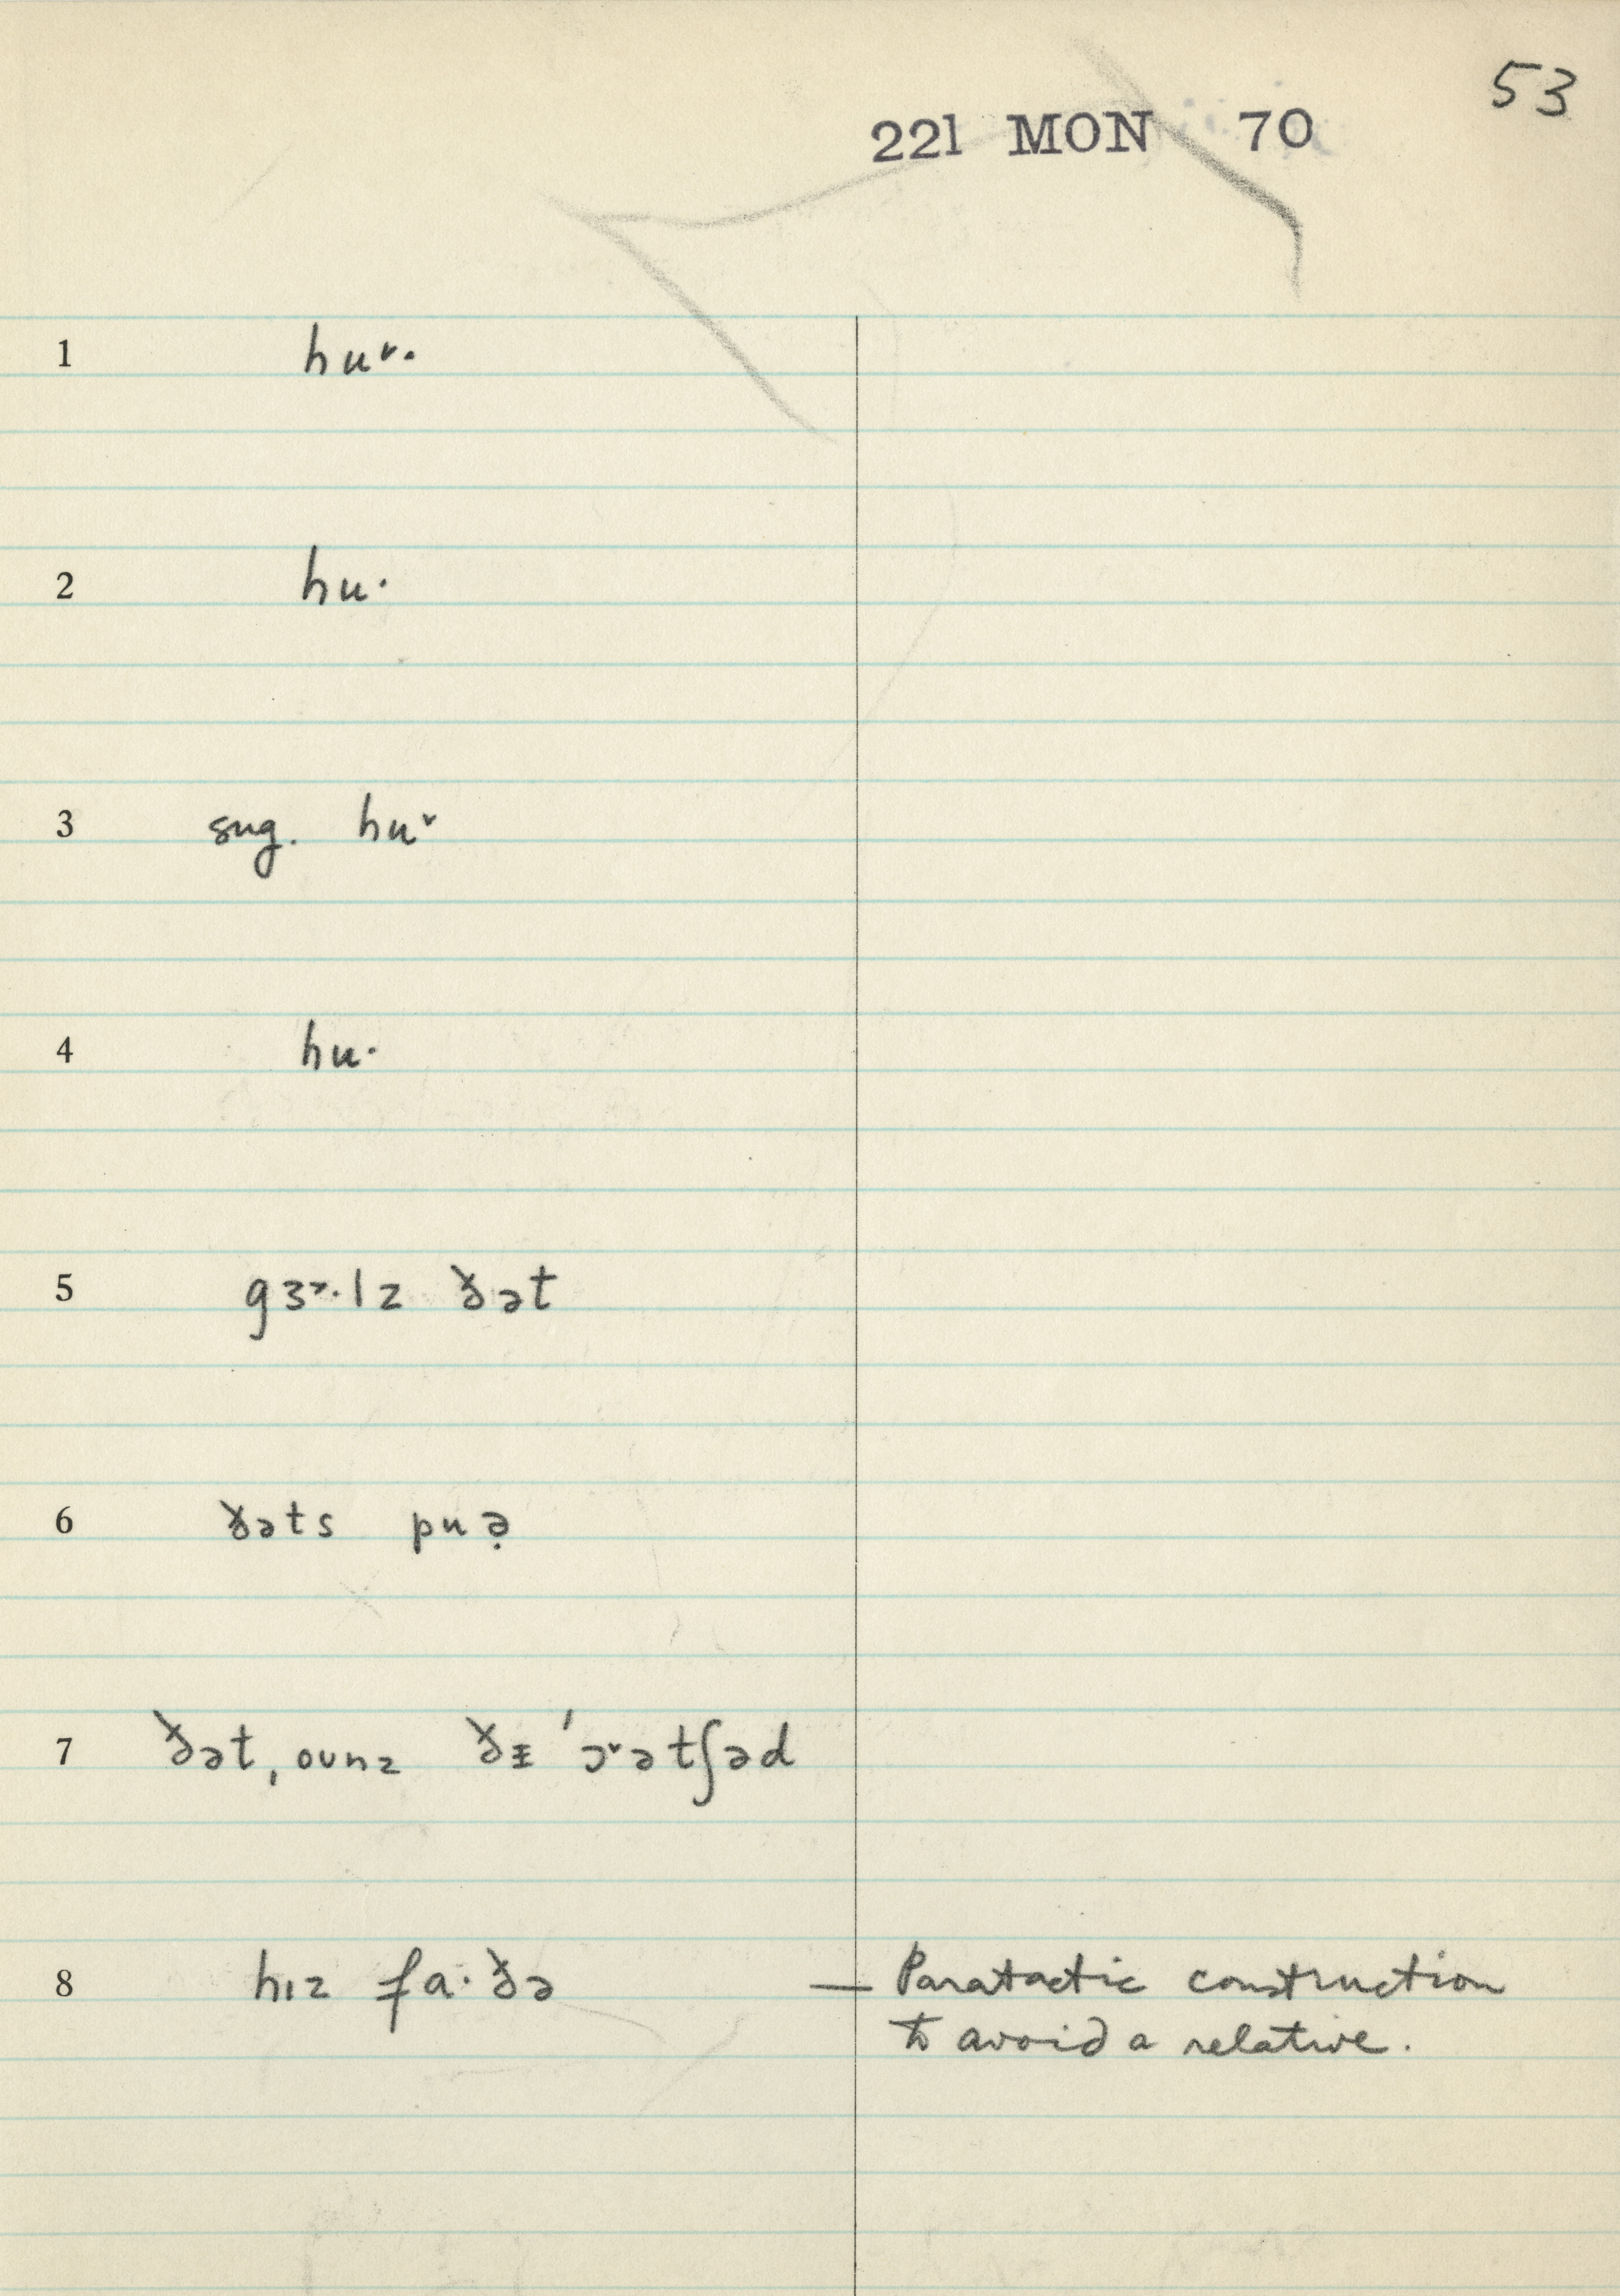 53
221 MON 70
1 hu˅·
2 hu·
3 sug. hu˅
4 hu·
5 gɜ˃·lz ðət
6 ðəts puə̣
7 ðət, oʊnz ðɪ̵ 'ɔ˅ətʃəd
8 hɪz fa·ðə — Paratactic construction
to avoid a relative.